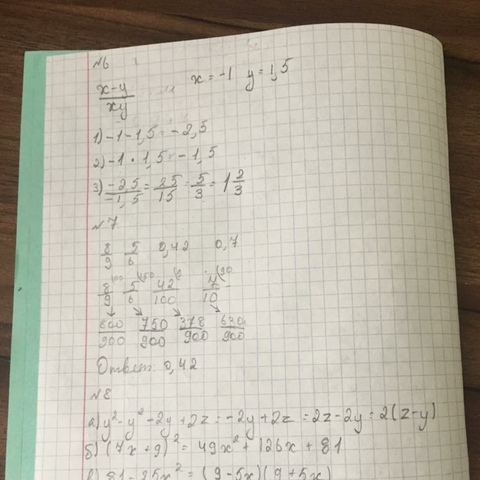 №6
x-y/xy x=-1 y=1,5
1) -1-1,5=-2,5
2) -1·1,5=-1,5
3) -2,5/-1,5=25/15=5/3=1 2/3
№7
8/9 5/6 0,42 0,7
8/9 5/6 42/100 7/10
800/900 750/900 378/900 630/900
Ответ: 0,42
№8
а) y²-y²-2y+2z=-2y+2z=2z-2y=2(z-y)
б) (7x+9)²=49x²+126x+81
в) 81-25x²=(9-5x)(9+5x)